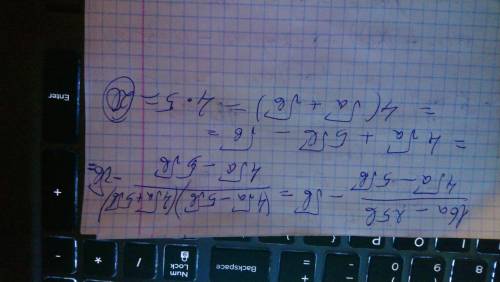 (16a - 25b)/(4√a - 5√b) - √b = (4√a - 5√b)(4√a + 5√b)/(4√a - 5√b) - √b =
= 4√a + 5√b - √b =
= 4(√a + √b) = 4·5 = 20
8 9 0 - + = Backspace Num Lock / * -
+
Enter